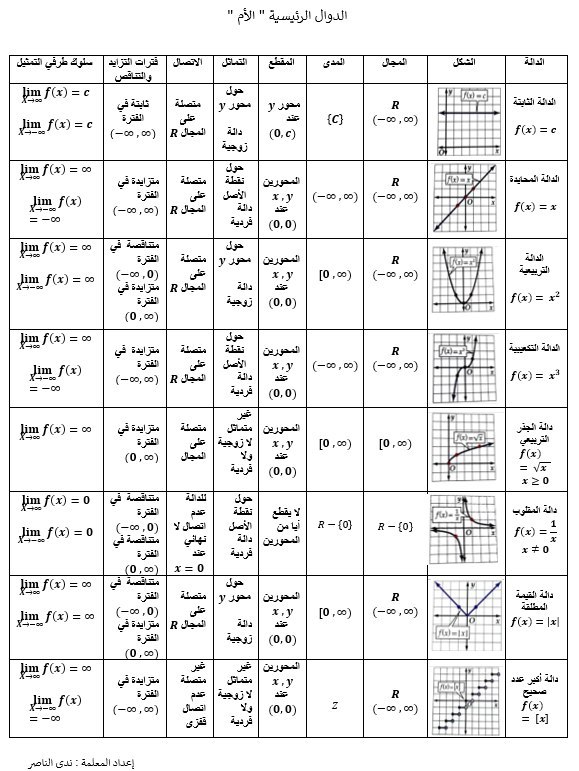 الدوال الرئيسية " الأم "
الدالة
الشكل
المجال
المدى
المقطع
التماثل
الاتصال
فترات التزايد
والتناقص
سلوك طرفي التمثيل
الدالة الثابتة
f(x) = c
f(x)=c
R
(−∞ ,∞)
{C}
محور y
عند
(0, c)
حول
محور y
دالة
زوجية
متصلة
على
المجال R
ثابتة في
الفترة
(−∞ ,∞)
lim f(x) = c
X→∞
lim f(x) = c
X→−∞
الدالة المحايدة
f(x) = x
f(x)=x
R
(−∞ ,∞)
(−∞ ,∞)
المحورين
x , y
عند
(0, 0)
حول
نقطة
الأصل
دالة
فردية
متصلة
على
المجال R
متزايدة في
الفترة
(−∞ ,∞)
lim f(x) = ∞
X→∞
lim f(x)
X→−∞
= −∞
الدالة
التربيعية
f(x) = x²
f(x)=x²
R
(−∞ ,∞)
[0 ,∞)
المحورين
x , y
عند
(0, 0)
حول
محور y
دالة
زوجية
متصلة
على
المجال R
متناقصة في
الفترة
(−∞ , 0)
متزايدة في
الفترة
(0 ,∞)
lim f(x) = ∞
X→∞
lim f(x) = ∞
X→−∞
الدالة التكعيبية
f(x) = x³
f(x)=x³
R
(−∞ ,∞)
(−∞ ,∞)
المحورين
x , y
عند
(0, 0)
حول
نقطة
الأصل
دالة
فردية
متصلة
على
المجال R
متزايدة في
الفترة
(−∞ ,∞)
lim f(x) = ∞
X→∞
lim f(x)
X→−∞
= −∞
دالة الجذر
التربيعي
f(x)
= √x
x ≥ 0
f(x)=√x
[0 ,∞)
[0 ,∞)
المحورين
x , y
عند
(0, 0)
غير
متماثل
لا زوجية
ولا
فردية
متصلة
على
المجال
متزايدة في
الفترة
(0 ,∞)
lim f(x) = ∞
X→∞
دالة المقلوب
f(x) = 1/x
x ≠ 0
R −{0}
R −{0}
لا يقطع
أيا من
المحورين
حول
نقطة
الأصل
دالة
فردية
للدالة
عدم
اتصال لا
نهائي
عند
x = 0
متناقصة في
الفترة
(−∞ , 0)
متناقصة في
الفترة
(0 ,∞)
lim f(x) = 0
X→∞
lim f(x) = 0
X→−∞
دالة القيمة
المطلقة
f(x) = |x|
f(x)=|x|
R
(−∞ ,∞)
[0 ,∞)
المحورين
x , y
عند
(0, 0)
حول
محور y
دالة
زوجية
متصلة
على
المجال R
متناقصة في
الفترة
(−∞ , 0)
متزايدة في
الفترة
(0 ,∞)
lim f(x) = ∞
X→∞
lim f(x) = ∞
X→−∞
دالة أكبر عدد
صحيح
f(x)
= [x]
R
(−∞ ,∞)
Z
المحورين
x , y
عند
(0, 0)
غير
متماثل
لا زوجية
ولا
فردية
غير
متصلة
عدم
اتصال
قفزي
متزايدة في
الفترة
(−∞ ,∞)
lim f(x) = ∞
X→∞
lim f(x)
X→−∞
= −∞
إعداد المعلمة : ندى الناصر